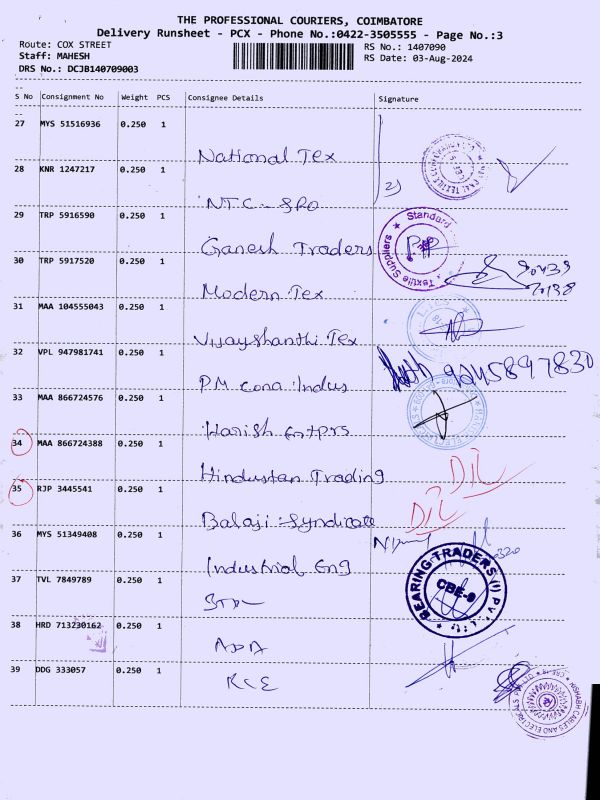 THE PROFESSIONAL COURIERS, COIMBATORE
Delivery Runsheet - PCX - Phone No.:0422-3505555 - Page No.:3
Route: COX STREET
RS No.: 1407090
Staff: MAHESH
RS Date: 03-Aug-2024
DRS No.: DCJB140709003
S No Consignment No Weight PCS Consignee Details Signature
27 MYS 51516936 0.250 1
National Tex
28 KNR 1247217 0.250 1
2)
NTC - SRO
29 TRP 5916590 0.250 1
Standard
Textile Suppliers
Ganesh Traders
30 TRP 5917520 0.250 1
Modern Tex
31 MAA 104555043 0.250 1
Vijayshanthi Tex
32 VPL 947981741 0.250 1
PM Cona Indus
33 MAA 866724576 0.250 1
Harish Entprs
34 MAA 866724388 0.250 1
Hindustan Trading
D/L
35 RJP 3445541 0.250 1
Balaji Syndicate
D/L
36 MYS 51349408 0.250 1
Industrial Eng
BEARING TRADERS (I) P
CBE-9
37 TVL 7849789 0.250 1
38 HRD 713230162 0.250 1
ADA
39 DDG 333057 0.250 1
RCE
RISHABH CABLES AND ELECTRICALS PVT. LTD. CBE-18